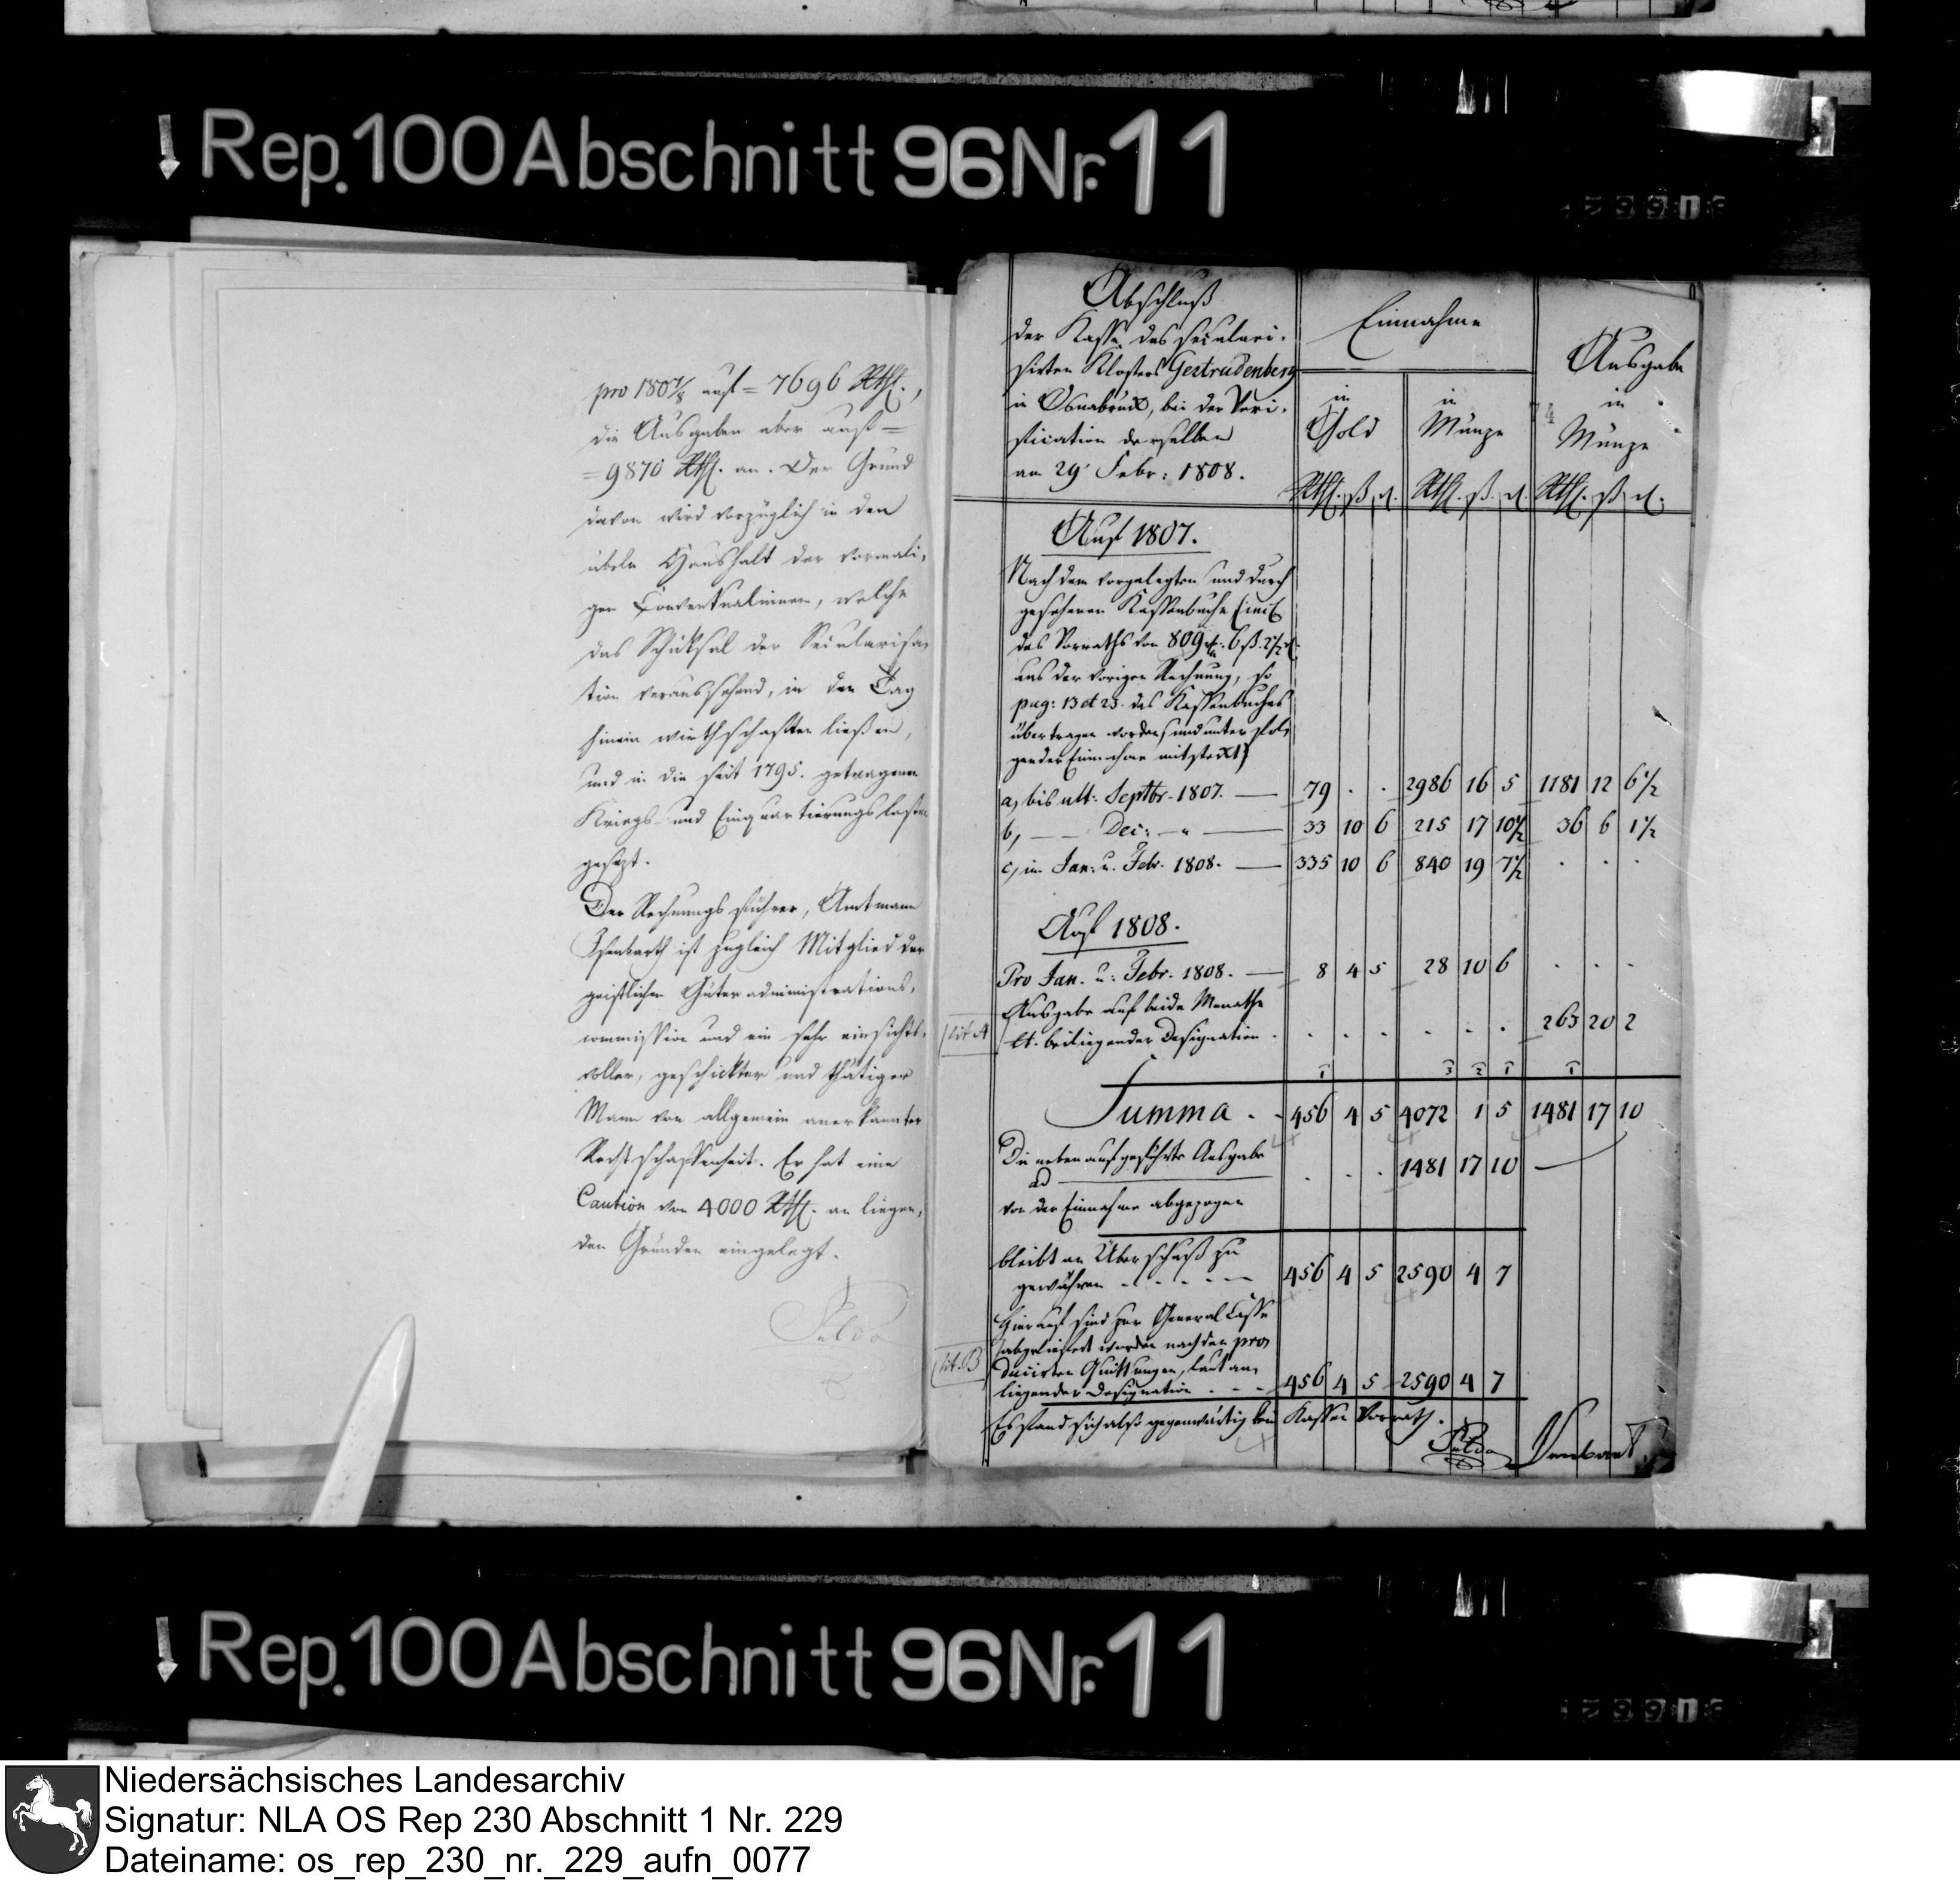 Rep. 100 Abschnitt 96 Nr. 11
pro 1807/8 auf = 7696 Rthl.,
die Ausgaben aber auf =
= 9870 Rthl. an. Der Grund
davon wird vorzüglich in den
übeln Haushalt der vormali-
gen Conventualinnen, welche
das Schiksal der Secularisa-
tion voraussehend, in den Tag
hinein wirthschaften ließen,
und in die seit 1795. getragenen
Kriegs- und Einquartierungs lasten
gesezt.
Der Rechnungsführer, Amtmann
Isenbarth ist zugleich Mitglied der
geistlichen Güteradministrations-
commission und ein sehr einsichts-
voller, geschickter und thätiger
Mann von allgemein anerkannter
Rechtschaffenheit. Er hat eine
Caution von 4000 Rthl. an liegen-
den Gründen eingelegt.
Fulda
Abschluß
der Kasse des seculari-
sirten Klosters Gertrudenberg
in Osnabrück, bei der Veri-
fication derselben
am 29' Febr: 1808.
Einnahme
Ausgabe
in Gold
in Münze
in Münze
Rthl. ß. d. Rthl. ß. d. Rthl. ß. d.
Auf 1807.
Nach dem vorgelegten und durch
gesehenen Kassenbuche (incl
des Vorraths von 809 rt: 6 ß. 2½ d.
aus der vorigen Rechnung, so
pag: 13 et 23. des Kassenbuches
übertragen worden, und unter fol-
gender Einnahme mit stect)
a, bis ult: Septbr. 1807. — 79 . . 2986 16 5 1181 12 6½
b, — — Dec: — " — 33 10 6 215 17 10½ 36 6 1½
c, in Jan: u. Febr. 1808. — 335 10 6 840 19 7½ . . .
Auf 1808.
Pro Jan. u: Febr. 1808. — 8 4 5 28 10 6 . . .
Ausgabe auf beide Monathe
lit. A
lt. beiliegender Designation . . . . . . . 263 20 2
1 3 2 1 1
Summa . . 456 4 5 4072 1 5 1481 17 10
Die neben aufgeführte Ausgabe
ad — . . . 1481 17 10 —
von der Einnahme abgezogen
bleibt an Überschuß zu
gewähren - - - - - 456 4 5 2590 4 7
Hierauf sind zur General Casse
abgeliefert worden nach den pro-
lit. B
ducirten Quittungen, laut an-
liegender Designation . - - 456 4 5 2590 4 7
Es fand sich also gegenwärtig kein Kassen Vorrath.
Fulda Isenbart
Rep. 100 Abschnitt 96 Nr. 11
Niedersächsisches Landesarchiv
Signatur: NLA OS Rep 230 Abschnitt 1 Nr. 229
Dateiname: os_rep_230_nr._229_aufn_0077